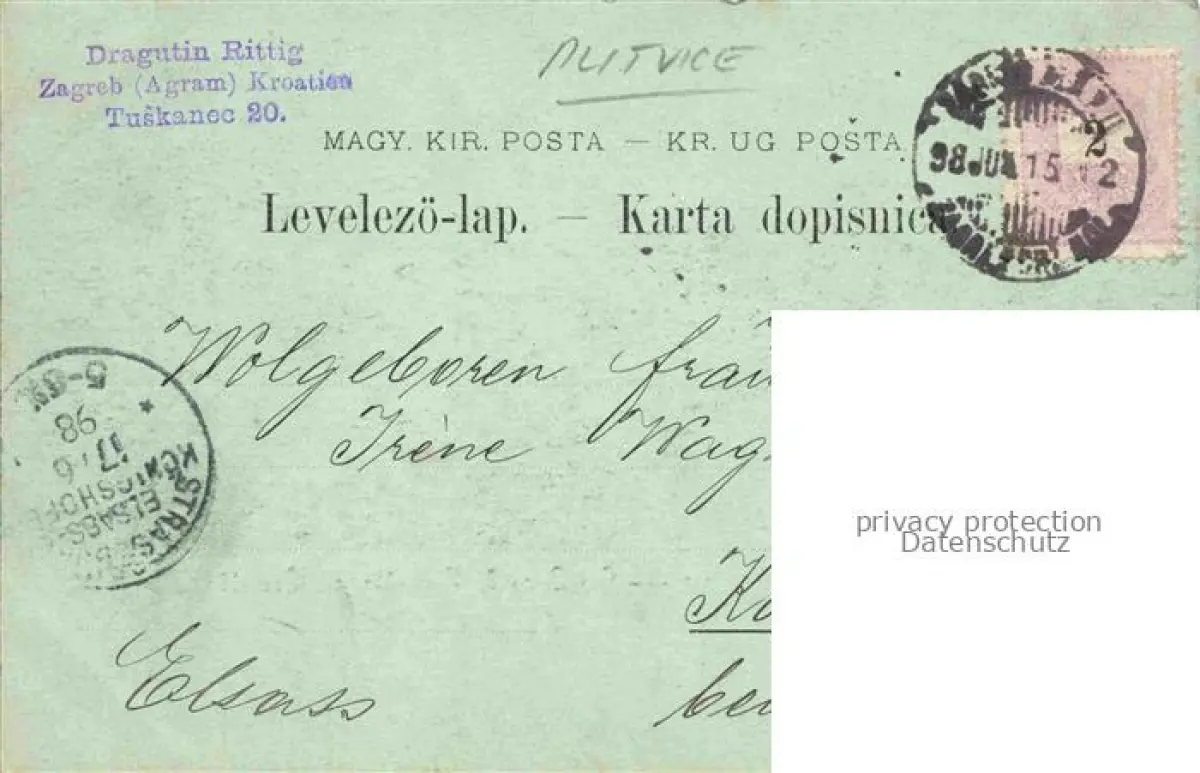 Dragutin Rittig
Zagreb (Agram) Kroatien
Tuškanec 20.
PLITVICE
MAGY. KIR. POSTA — KR. UG POŠTA
Levelező-lap. — Karta dopisnica
2
98 JUN 15
Wolgeboren
Irène
Elsass
STRASSB
KÖNIGSHOF
ELSASS
17 6
98
5-6N
privacy protection
Datenschutz